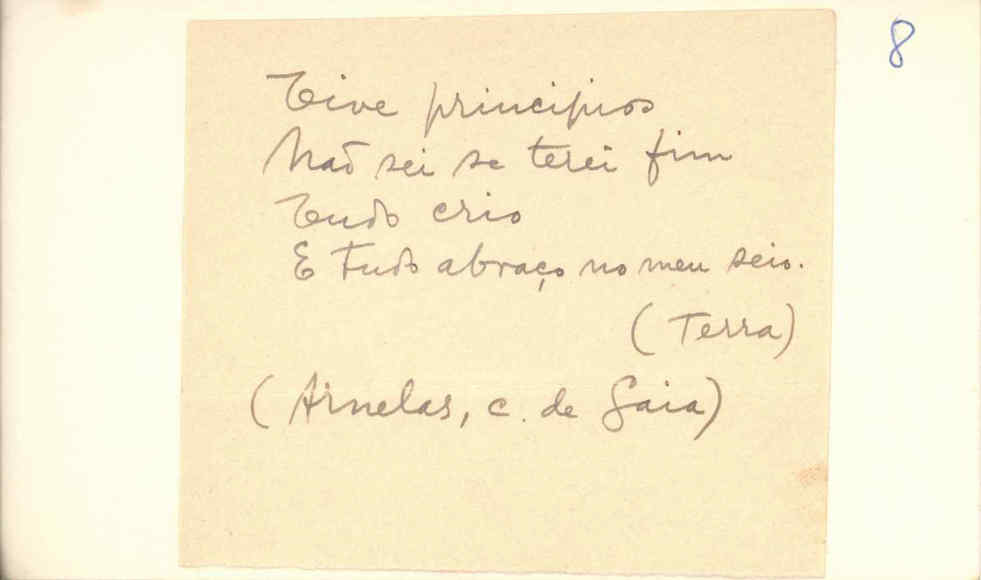 8
Tive principios
Não sei se terei fim
Tudo crio
E tudo abraço no meu seio.
(Terra)
(Arnelas, c. de Gaia)